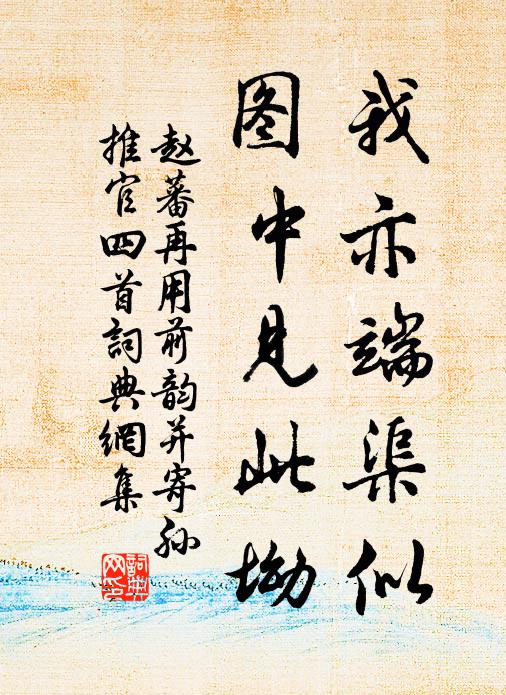 我亦端渠似
图中见此拗
赵蕃再用前韵并寄孙
推官四首词典網集
詞典网印